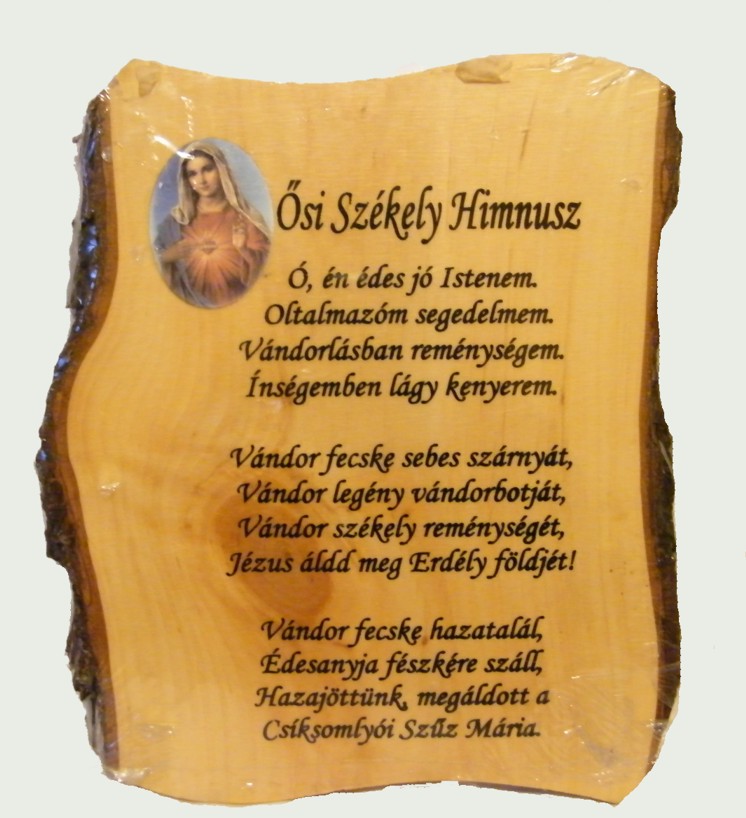 Ősi Székely Himnusz
Ó, én édes jó Istenem.
Oltalmazóm segedelmem.
Vándorlásban reménységem.
Ínségemben lágy kenyerem.
Vándor fecske sebes szárnyát,
Vándor legény vándorbotját,
Vándor székely reménységét,
Jézus áldd meg Erdély földjét!
Vándor fecske hazatalál,
Édesanyja fészkére száll,
Hazajöttünk, megáldott a
Csíksomlyói Szűz Mária.